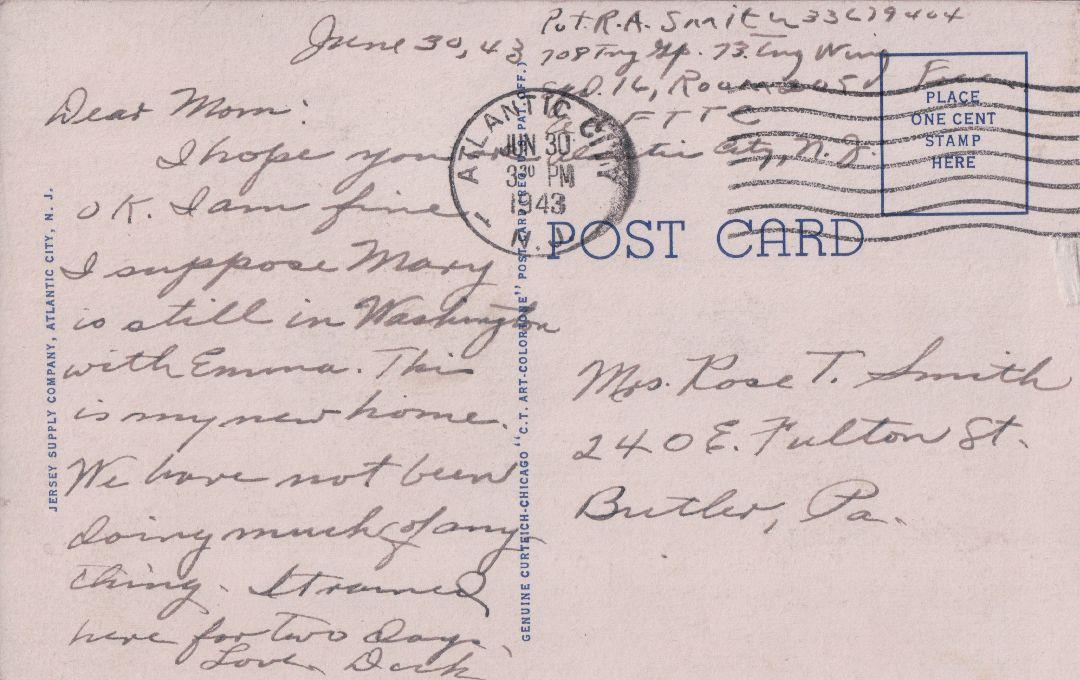 June 30, 43
Pvt. R.A. Smith 33679404
708 Tng Gp. 73. Tng Wing
16, Room
Free
F T T C
Atlantic City, N. J.
Dear Mom:
I hope you are
OK. I am fine.
I suppose Mary
is still in Washington
with Emma. This
is my new home.
We have not been
doing much of any
thing. It rained
here for two days.
Love Dick
ATLANTIC CITY
JUN 30
3 30 PM
1943
N.J.
1
PLACE
ONE CENT
STAMP
HERE
POST CARD
Mrs. Rose T. Smith
240 E. Fulton St.
Butler, Pa.
JERSEY SUPPLY COMPANY, ATLANTIC CITY, N. J.
GENUINE CURTEICH-CHICAGO "C.T. ART-COLORTONE" POST CARD (REG. U.S. PAT. OFF.)